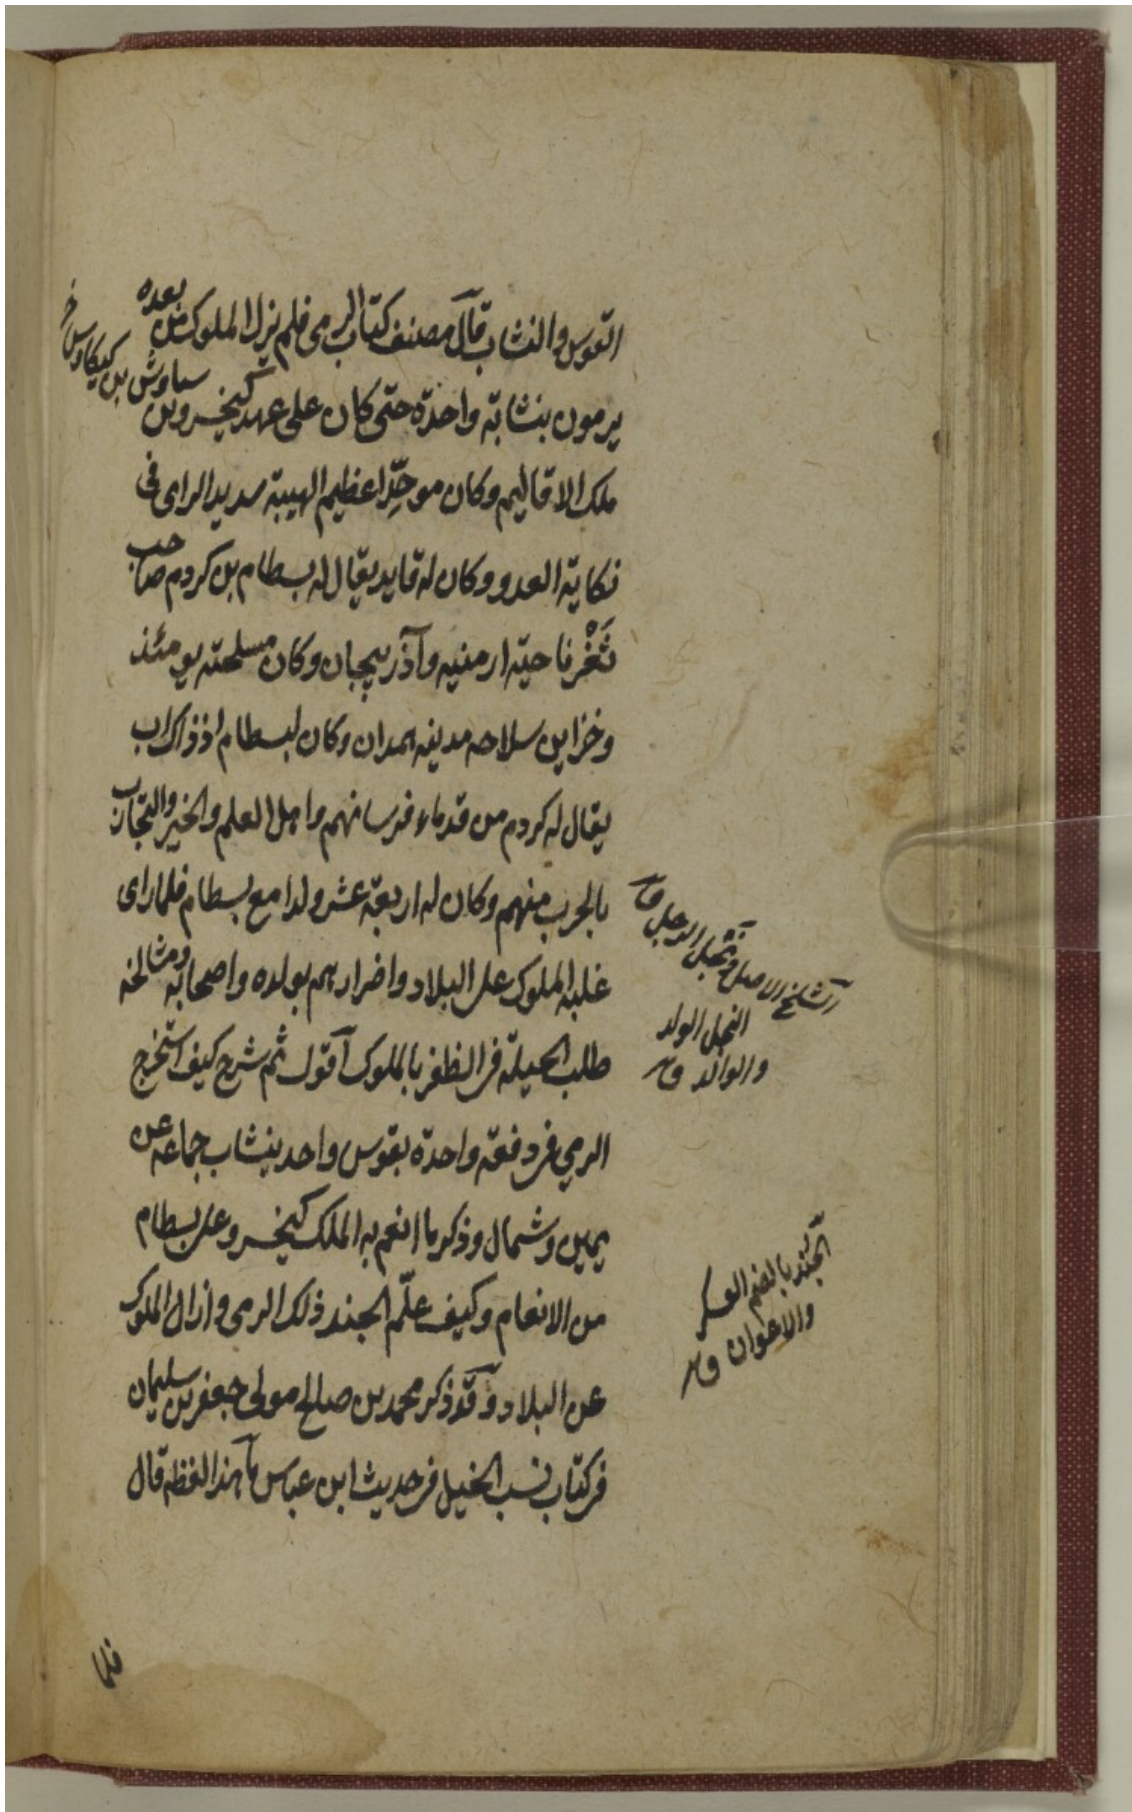 القوس والنشاب قال مصنف كتاب الرمى فلم يزل الملوك من بعده
يرمون بنشابة واحدة حتى كان على عهد كيخسرو بن سياوش بن كيكاوس
ملك الاقاليم وكان موحّدا عظيم الهيبة سديد الراى فى
نكاية العدو وكان له قايد يقال له بسطام بن كردم صاحب
ثَغْر ناحية ارمنيه وآذربيجان وكان مسلحته يومئذ
وخزاين سلاحه مدينه همدان وكان لبسطام اذ ذاك اب
يقال له كردم من قدماء فرسانهم واهل العلم والخير والتجارب
بالحرب منهم وكان له اربعة عشر ولدا مع بسطام فلما راى
غلبة الملوك على البلاد واضرارهم بولده واصحابه ومشالخه
طلب الحيلة فى الظفر بالملوك آقول ثم شرح كيف استخرج
الرمي فى دفعة واحدة بقوس واحد بنشاب جماعه عن
يمين وشمال وذكر ما انعم به الملك كيخسرو على بسطام
من الانعام وكيف علّم الجند ذلك الرمى وازال الملوك
عن البلاد وقد ذكر محمد بن صالح مولى جعفر بن سليمان
فى كتاب نسب الخيل فى حديث ابن عباس ما هذا لفظه قال
الشلخ الاصل ونجل الرجل ق
النجل الولد
والوالد ق
الجُند بالضم العسكر
والاعوان ق
فلما